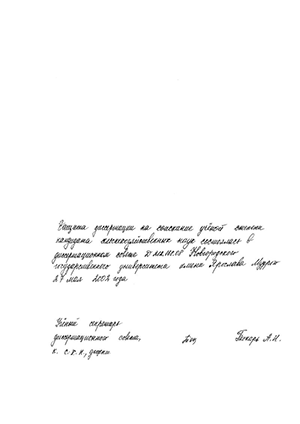 Защита диссертации на соискание учёной степени
кандидата сельскохозяйственных наук состоялась в
диссертационном совете Новгородского
государственного университета имени Ярослава Мудрого
27 мая 2002 года
Учёный секретарь
диссертационного совета,
к. с.-х. н., доцент